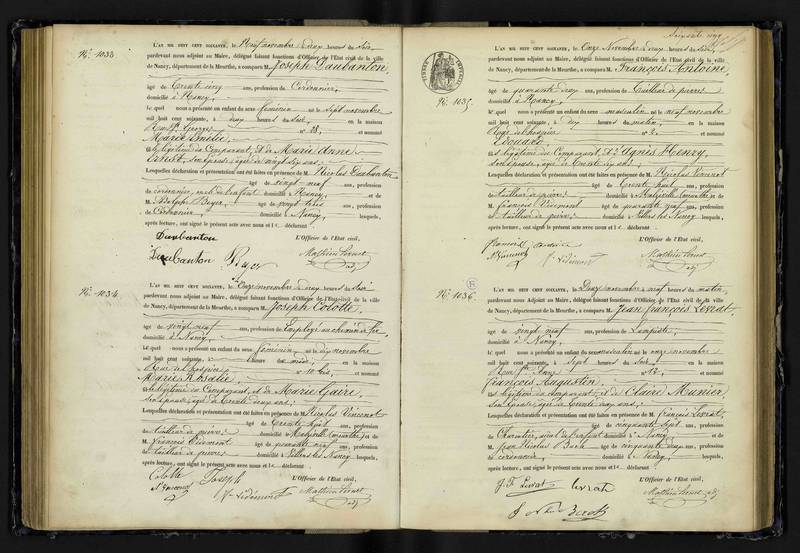 N° 1033.
L'AN MIL HUIT CENT SOIXANTE, le Neuf novembre à deux heures du soir,
pardevant nous adjoint au Maire, délégué faisant fonctions d'Officier de l'Etat civil de la ville
de Nancy, département de la Meurthe, a comparu M. Joseph Daubanton,
âgé de trente cinq ans, profession de Cordonnier,
domicilié à Nancy,
lequel nous a présenté un enfant du sexe féminin né le sept novembre
mil huit cent soixante, à deux heures du soir, en la maison
Rue St Georges n° 88, et nommé
Marie Amélie,
fille légitime du Comparant, et de Marie Anne
son épouse, âgée de vingt six ans;
Lesquelles déclaration et présentation ont été faites en présence de M. Nicolas Daubanton
âgé de vingt-neuf ans, profession
de cordonnier, oncle de l'enfant domicilié à Nancy, et de
M. Adolphe Boyer, âgé de vingt trois ans, profession
de Cordonnier, domicilié à Nancy, lesquels,
après lecture, ont signé le présent acte avec nous et le déclarant.
L'Officier de l'Etat civil,
Daubanton
Daubanton Boyer
N° 1034.
L'AN MIL HUIT CENT SOIXANTE, le Onze novembre à deux heures du soir
pardevant nous adjoint au Maire, délégué faisant fonctions d'Officier de l'Etat civil de la ville
de Nancy, département de la Meurthe, a comparu M. Joseph Colotte,
âgé de vingt neuf ans, profession de Employé au chemin de fer
domicilié à Nancy,
lequel nous a présenté un enfant du sexe féminin né le dix novembre
mil huit cent soixante, à heures du midi, en la maison
n° 10 bis, et nommé
Marie Rosalie,
fille légitime du Comparant, et de Marie Gaire,
son épouse, âgée de trente deux ans;
Lesquelles déclaration et présentation ont été faites en présence de M. Nicolas Vincenot
âgé de trente sept ans, profession
de tailleur de pierres domicilié à Malzéville (Meurthe), et de
M. François Viémont âgé de quarante neuf ans, profession
de tailleur de pierres domicilié à Villers les Nancy lesquels,
après lecture, ont signé le présent acte avec nous et le déclarant
L'Officier de l'Etat civil,
Colotte Joseph
N° 1035.
L'AN MIL HUIT CENT SOIXANTE, le Onze Novembre à deux heures du soir,
pardevant nous adjoint au Maire, délégué faisant fonctions d'Officier de l'Etat civil de la ville
de Nancy, département de la Meurthe, a comparu M. François Antoine,
âgé de quarante deux ans, profession de tailleur de pierres
domicilié à Nancy,
lequel nous a présenté un enfant du sexe masculin né le neuf novembre
mil huit cent soixante, à dix heures du matin, en la maison
n° 2, et nommé
Edouard,
fils légitime du Comparant, et d'Agnès Henry,
son épouse, âgée de trente six ans;
Lesquelles déclaration et présentation ont été faites en présence de M. Nicolas Vincenot
âgé de trente sept ans, profession
de tailleur de pierres domicilié à Malzéville (Meurthe), et de
M. François Viémont âgé de quarante neuf ans, profession
de tailleur de pierres domicilié à Villers les Nancy lesquels,
après lecture, ont signé le présent acte avec nous et le déclarant.
L'Officier de l'Etat civil,
N° 1036.
L'AN MIL HUIT CENT SOIXANTE, le Douze novembre à neuf heures du matin,
pardevant nous adjoint au Maire, délégué faisant fonctions d'Officier de l'Etat civil de la ville
de Nancy, département de la Meurthe, a comparu M. Jean françois Levrat,
âgé de vingt neuf ans, profession de Lampiste,
domicilié à Nancy,
lequel nous a présenté un enfant du sexe masculin né le onze novembre
mil huit cent soixante, à sept heures du soir, en la maison
Rue Ste Anne n° 12, et nommé
François Augustin,
fils légitime du comparant, et de Claire Munier,
son épouse, âgée de trente deux ans;
Lesquelles déclaration et présentation ont été faites en présence de M. François Levrat,
âgé de cinquante sept ans, profession
de Charretier, aïeul de l'enfant domicilié à Nancy et de
M. Jean Nicolas Back âgé de cinquante deux ans, profession
de cordonnier, domicilié à Nancy, lesquels,
après lecture, ont signé le présent acte avec nous et le déclarant
L'Officier de l'Etat civil,
J. F. Levrat Levrat